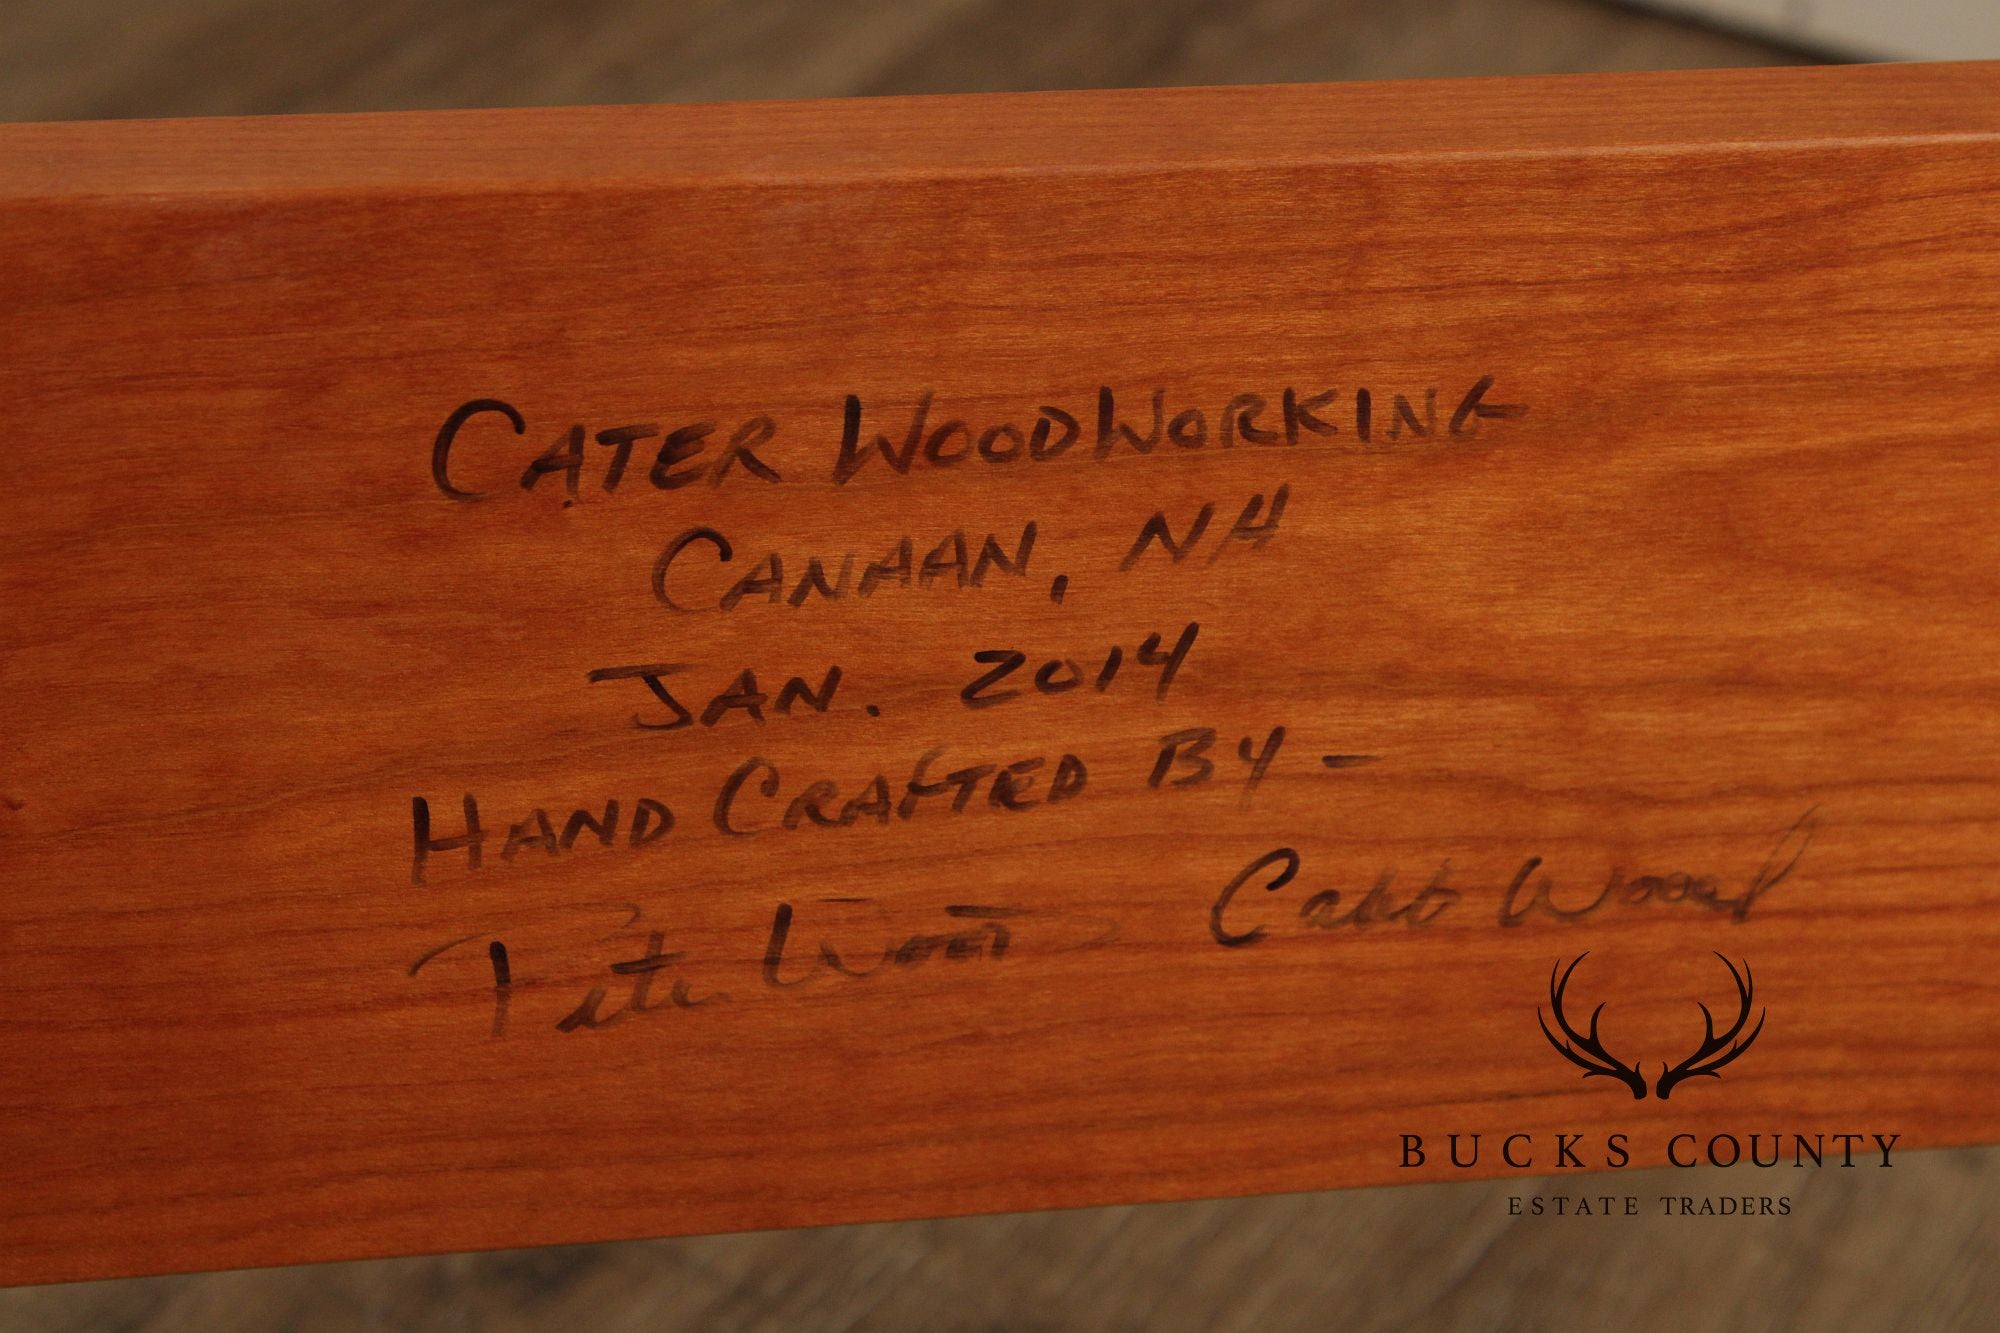 CATER WOODWORKING
CANAAN, NH
JAN. 2014
HAND CRAFTED BY -
Pete Wood Cabot Wood
BUCKS COUNTY
ESTATE TRADERS